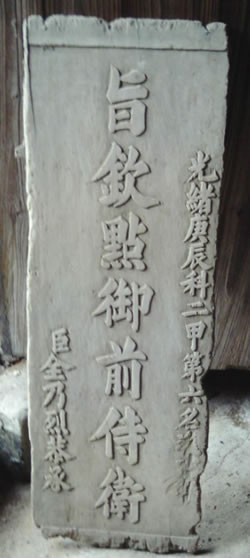 光緒庚辰科二甲第六名
旨欽點御前侍衛
臣金乃烈恭承